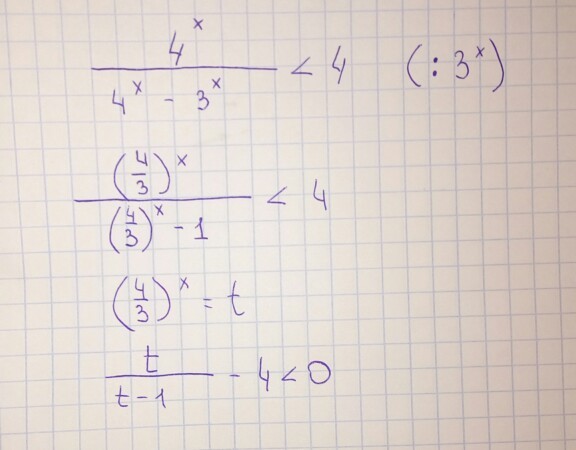 4^x / (4^x - 3^x) < 4 (: 3^x)
(4/3)^x / ((4/3)^x - 1) < 4
(4/3)^x = t
t / (t - 1) - 4 < 0